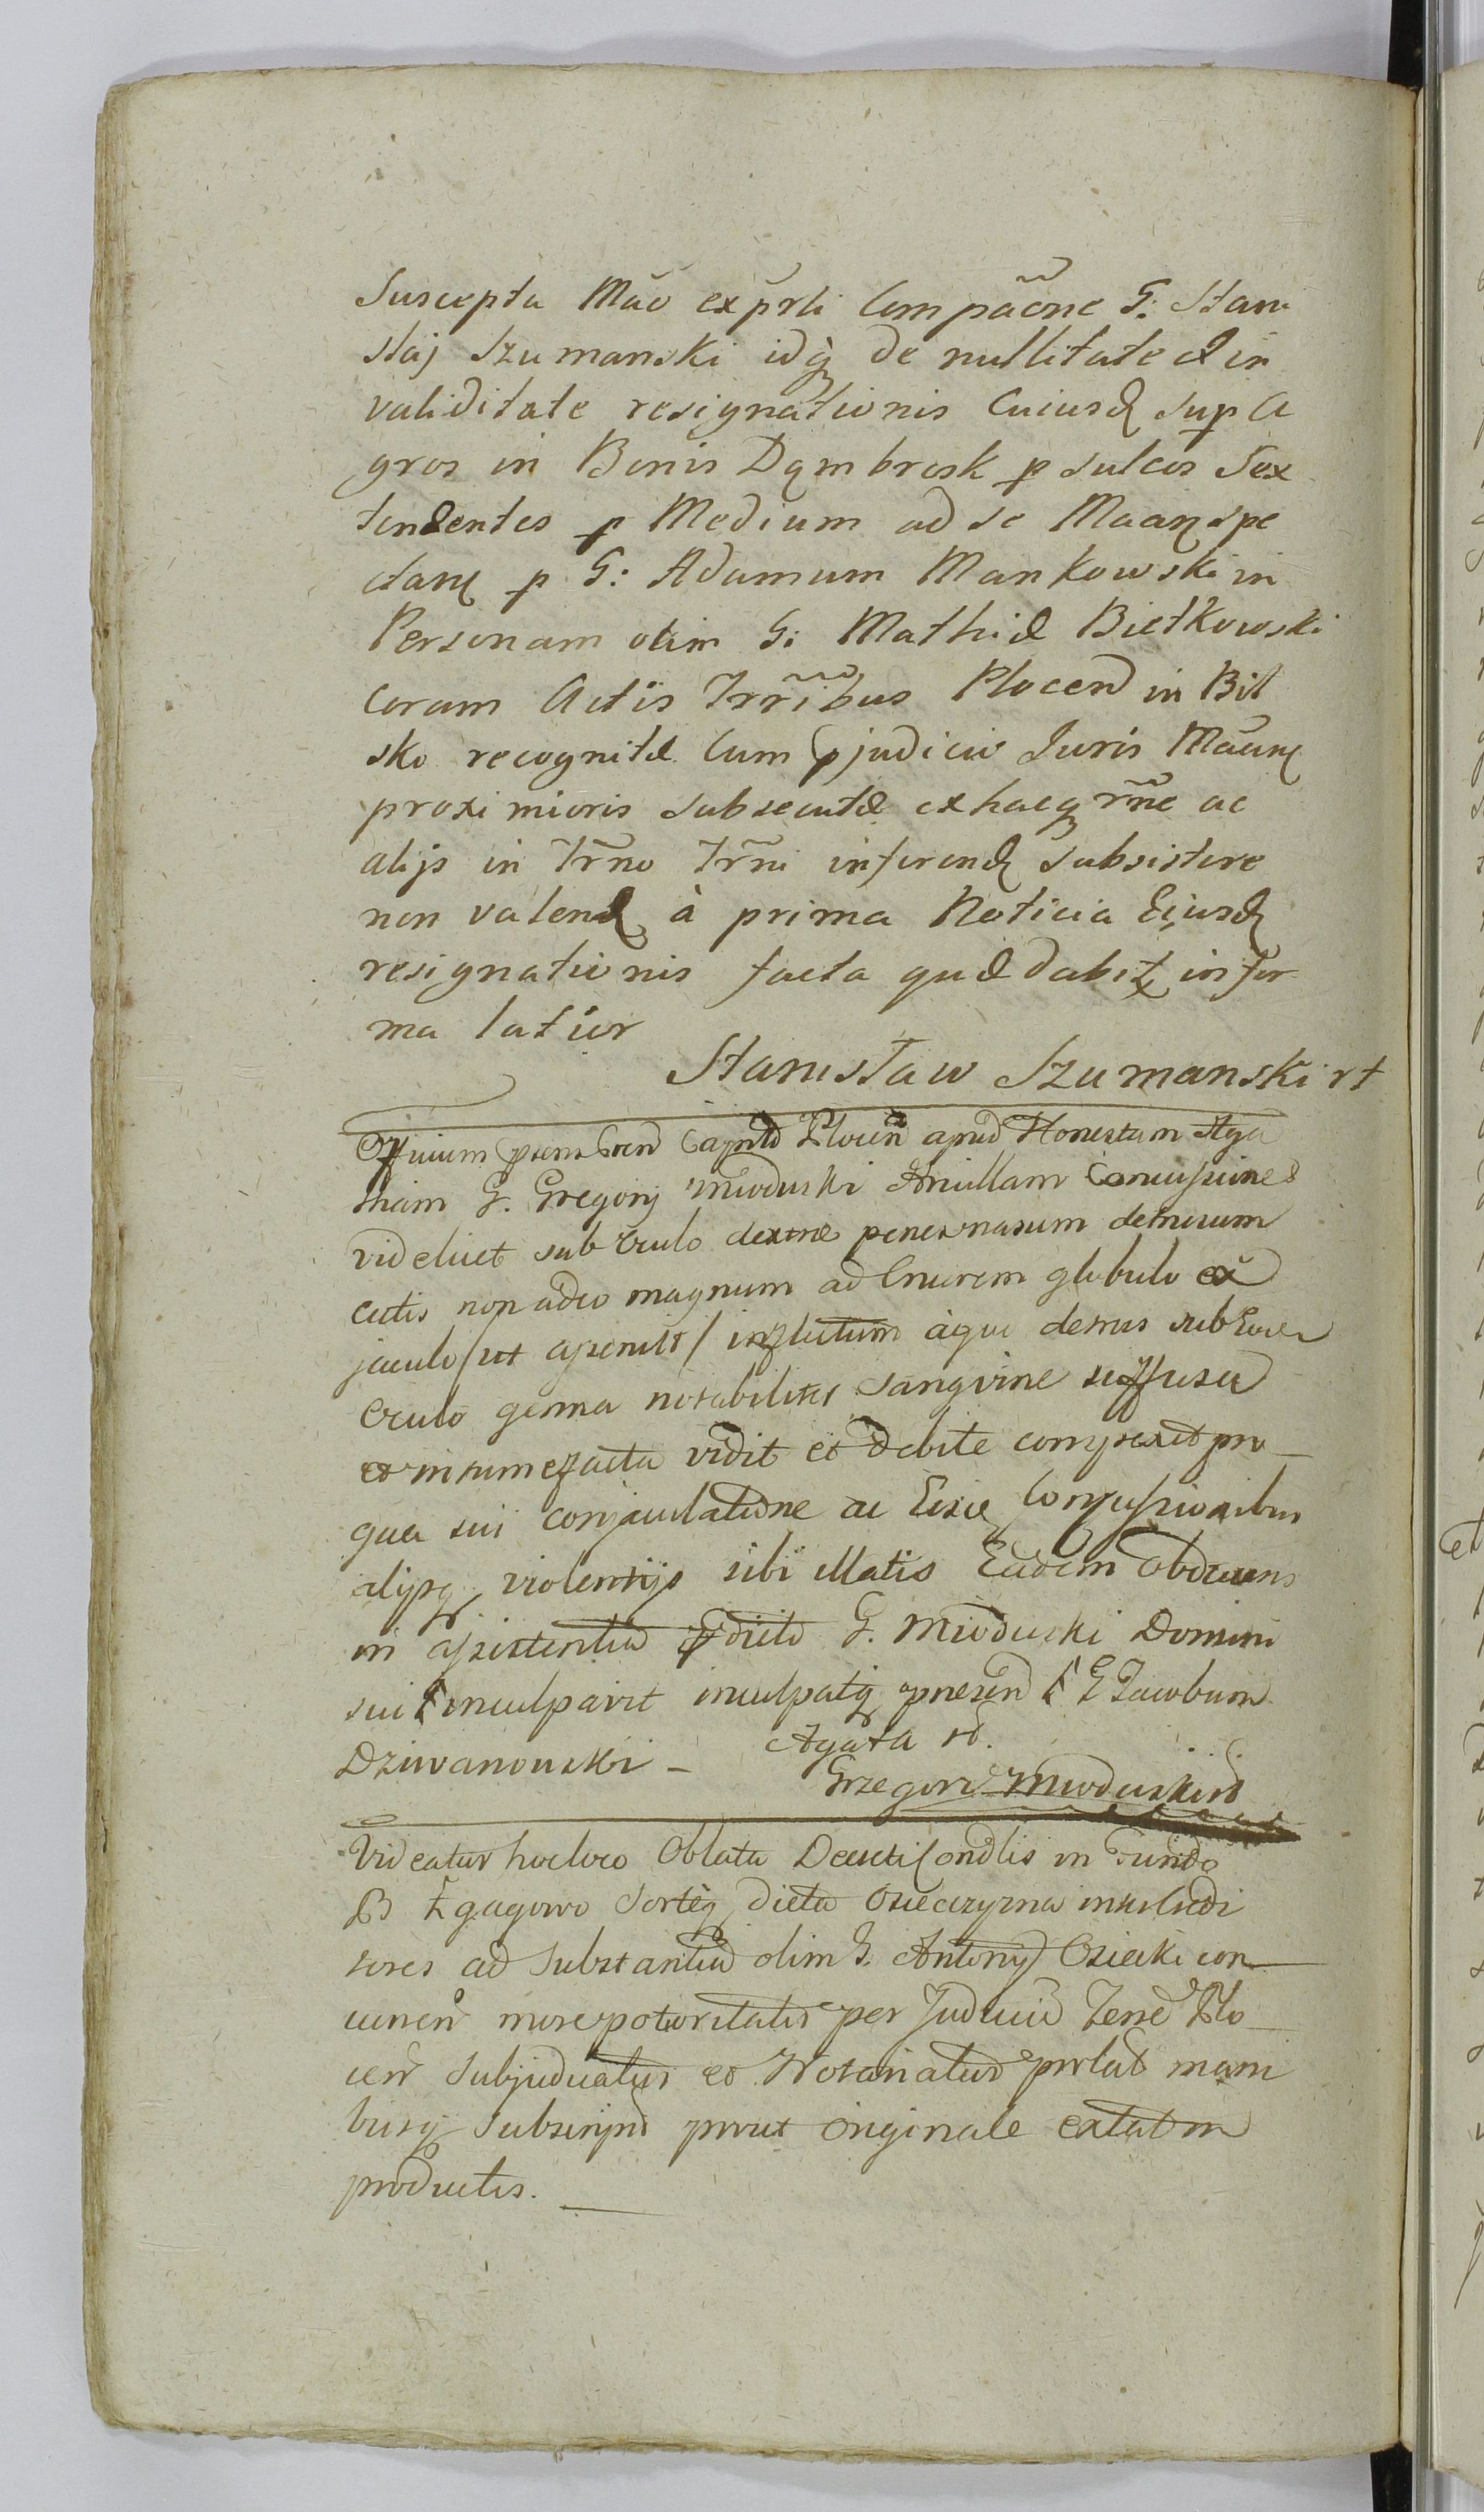 Suscepta Mão ex p̃rli Compãone G: Stani
slaj Szumanski idq̃ de nullitate & in
validitate resignationis Cuiusd sup A
gros in Bonis Dąmbrosk p sulcos Sex
tendentes p Medium ad se Maan spe
ctan p G: Adamum Mankowski in
Personam olim G: Mathiæ Bietkowski
Coram Actis Trr̃ibus Plocen in Bil
sko recognitæ Cum pjudicio Juris Mãan
proximioris subsecutæ ex hacq r̃ne ac
alijs in Tr̃no Tr̃ni inferend subsistere
non valend à prima Noticia Eiusd
resignationis facta quæ dabit in for
ma latior
Stanisław Szumanski rt
Officium prens Cren Captle Plocen apud Honestam Aga
tham G. Gregorij Mioduski Ancillam Concussiones
videlicet sub Oculo dextro penes nasum detricum
cutis non adeo magnum ad Cruorem globulo ex
jaculo /ut asseruit/ inflictum àque
Oculo gemma notabiliter Sangvine suffusa
et intumefacta vidit et debite conspexit pro
qua sui conjaculatione ac Concussionibus
alijsq violentijs sibi illatis Eadem Obducens
in assistentia G. Mioduski Domini
sui inculpavit inculpatq presen G Jacobum
Dziwanowski –
Agata rd.
Grzegorz Mioduski rd
Videatur hocloco Oblata Decreti Condlis in Fundo
B Zgagowo Sorteq dicta Osieczyzna inter Credi
tores ad Substantia olim G. Antonij Osiecki con
cernen more potioritatis per Judicia Terre Plo
cen Subjudicatus et Notariatus prolat mani
busq Subscript prout originale extat in
productis.